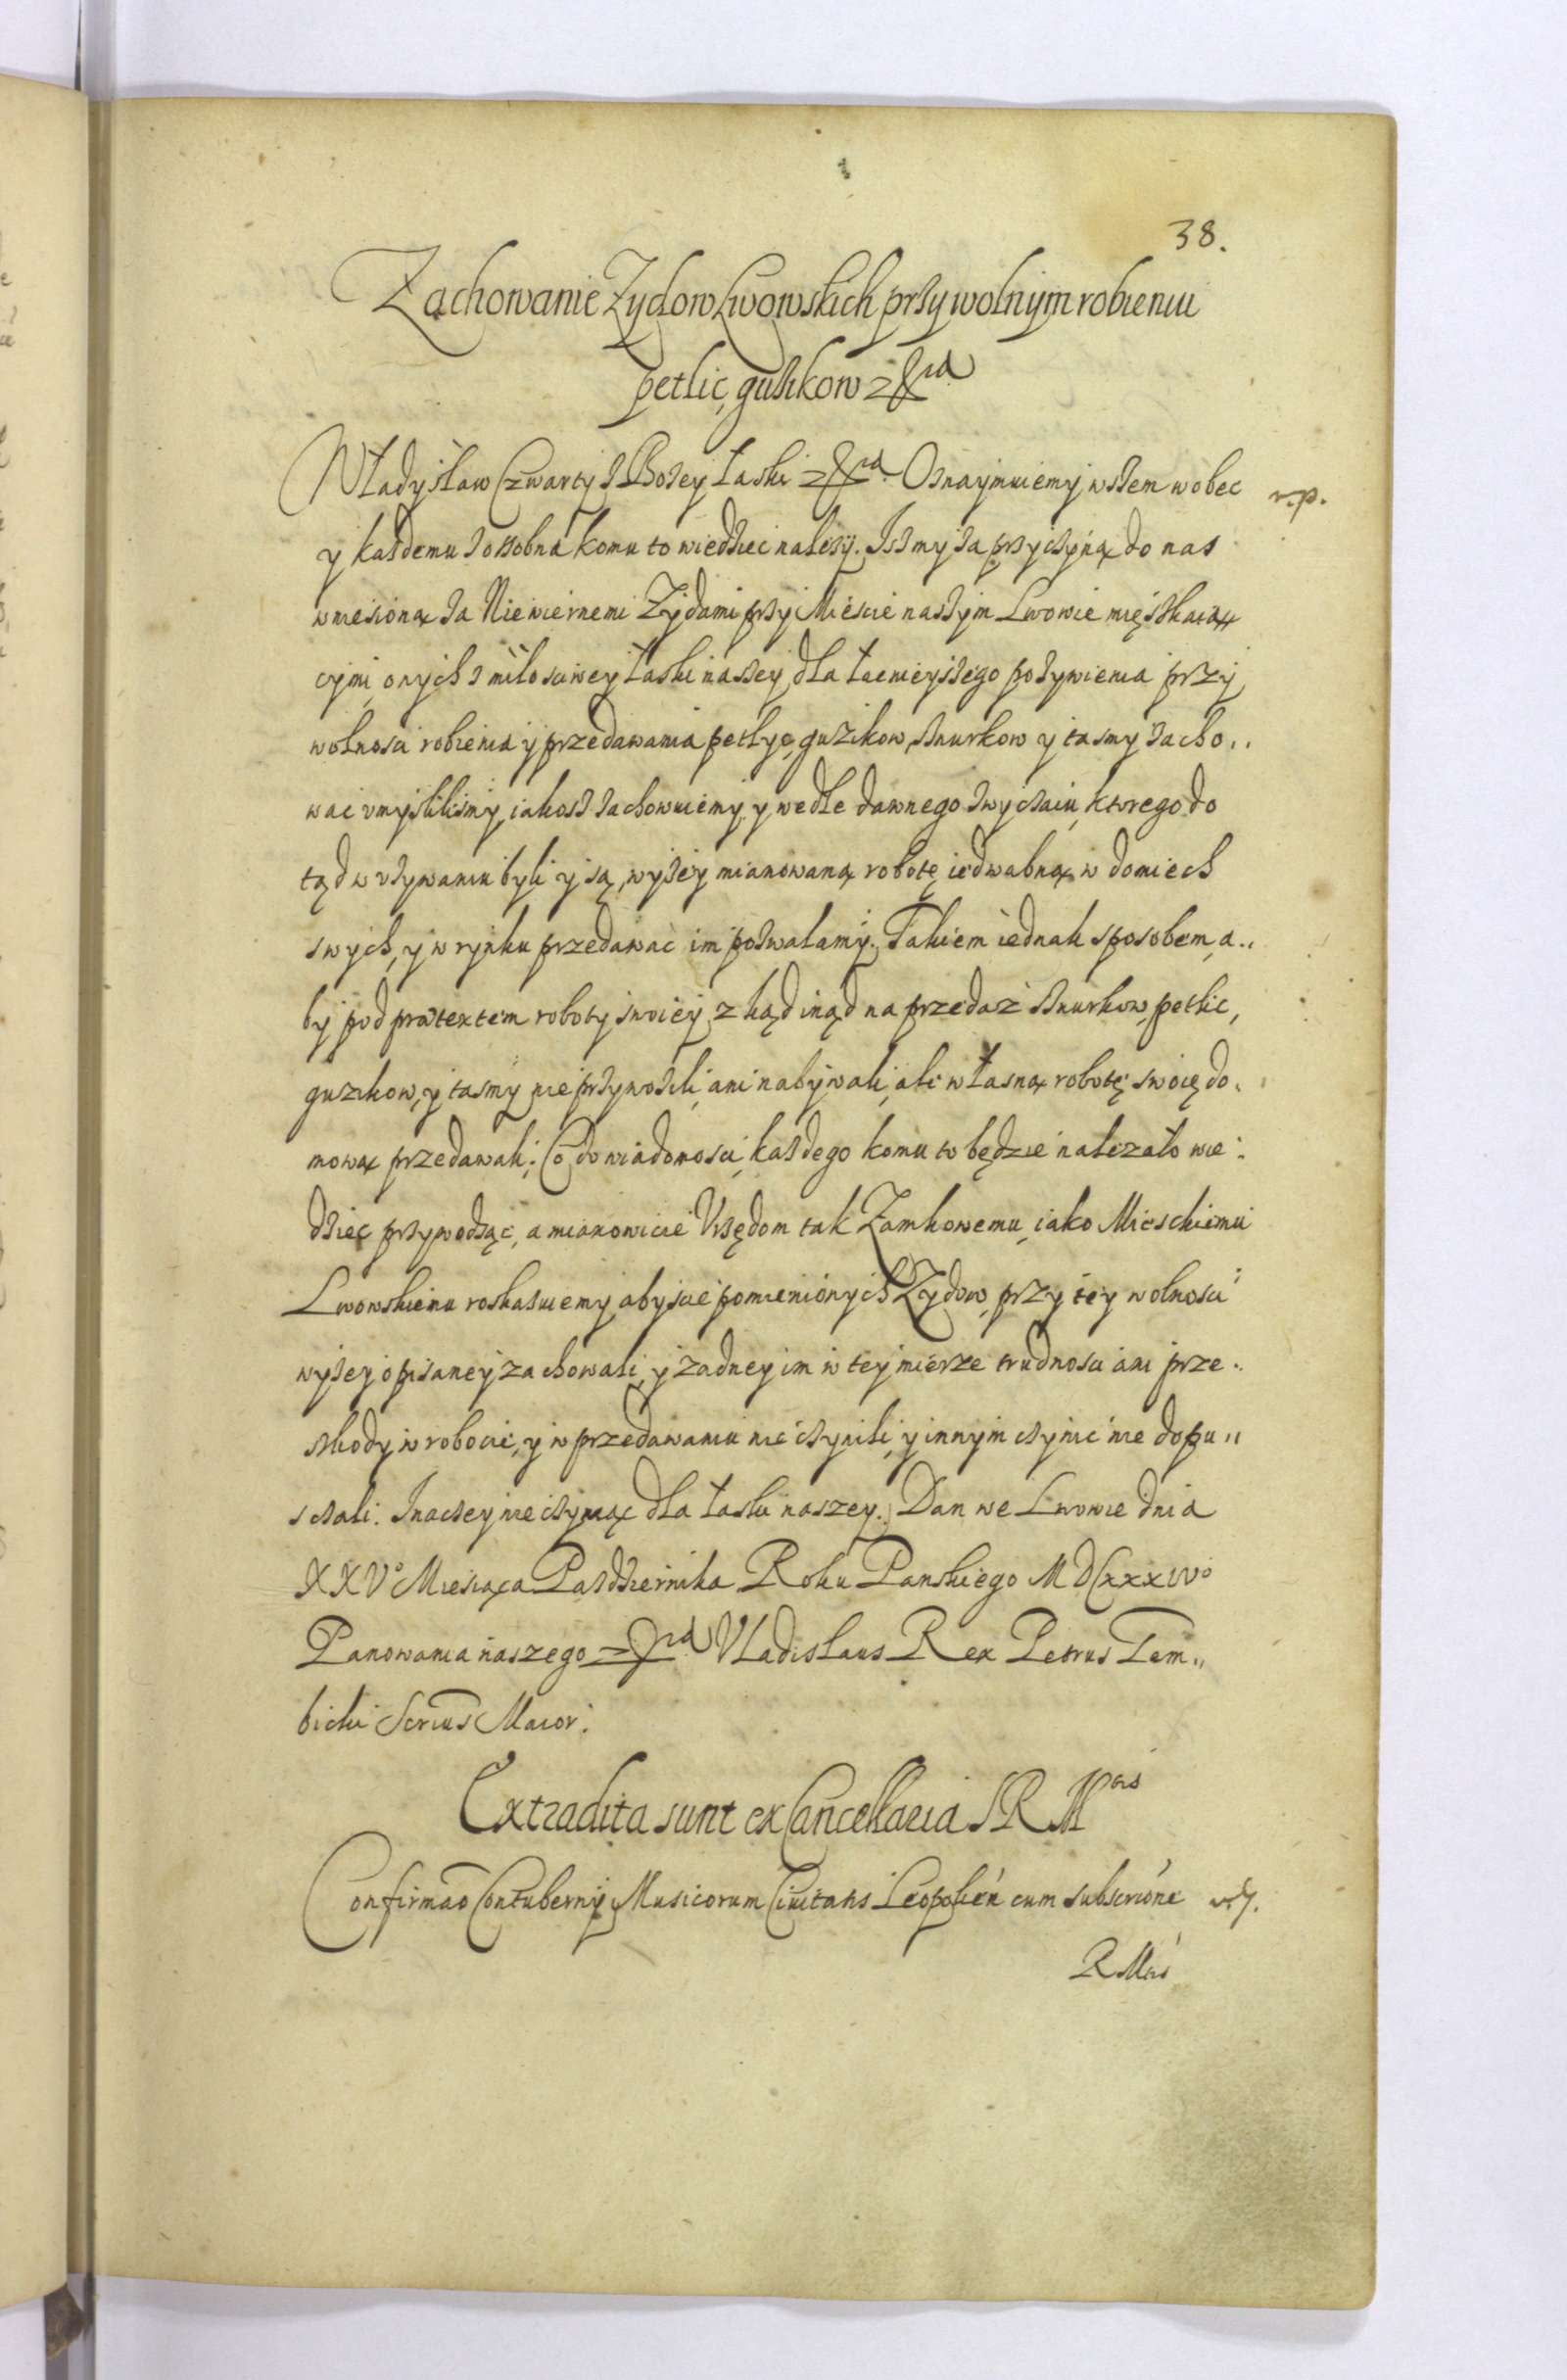 38.
Zachowanie Zydow Lwowskich przy wolnym robieniu
petlic, guzikow etc̃ra
Władysław Czwarty z Bozey łaski etc̃ra Oznaymuiemy wszem wobec r. p.
y kazdemu zosobna komu to wiedziec nalezy. Izesmy za przyczyną do nas
wniesioną za Niewiernemi Zydami przy Miescie naszym Lwowie mięszkaią
cymi onych z miłosciwey łaski naszey dla łacnieyszego pozywienia przy
wolnosci robienia y przedawania petlyc, guzikow, sznurkow y tasmy zacho..
wac vmyslilismy, iakosz zachowuiemy, y wedle dawnego zwyczaiu, ktorego do
tąd w vzywaniu byli y są, wyzey mianowaną robotę iedwabną w domiech
swych, y w rynku przedawac im pozwalamy. Takiem iednak sposobem, a..
by pod prætextem roboty swoiey z kąd inąd na przedaz sznurkow, petlic,
guzikow, y tasmy nie przywozili, ani nabywali, ale własną robotę swoię do.
mową przedawali: Co do wiadomosci kazdego komu to będzie nalezało wie:
dziec przywodząc, a mianowicie Vrzędom tak Zamkowemu, iako Mieskiemu
Lwowskiemu roskazuiemy abyscie pomienionych Zydow, przy tey wolnosci
wyzey opisaney zachowali, y zadney im w tey mierze trudnosci ani prze..
szkody w robocie, y w przedawaniu nie czynili, y innym czynic nie dopu..
sczali. Inaczey nie czyniąc dla łaski naszey. Dan we Lwowie dnia
XXVo Miesiąca Pazdziernika Roku Panskiego MDCxxxivo
Panowania naszego etc̃ra Vladislaus Rex Petrus Gem..
bicki Secrius Maior.
Extradita sunt ex Cancellaria S R Mtis
Confirmao Contubernij Musicorum Ciuitatis Leopolien cum subscrione
R Mtis